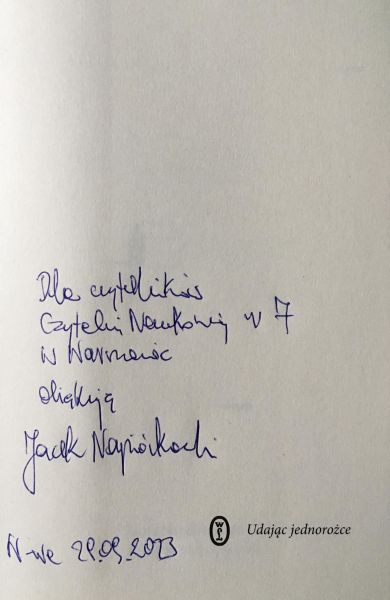 Dla czytelników
Czytelni Naukowej nr 7
w Warszawie
dziękuję
Jacek Napiórkowski
W-wa 29.09.2023
WL Udając jednorożce